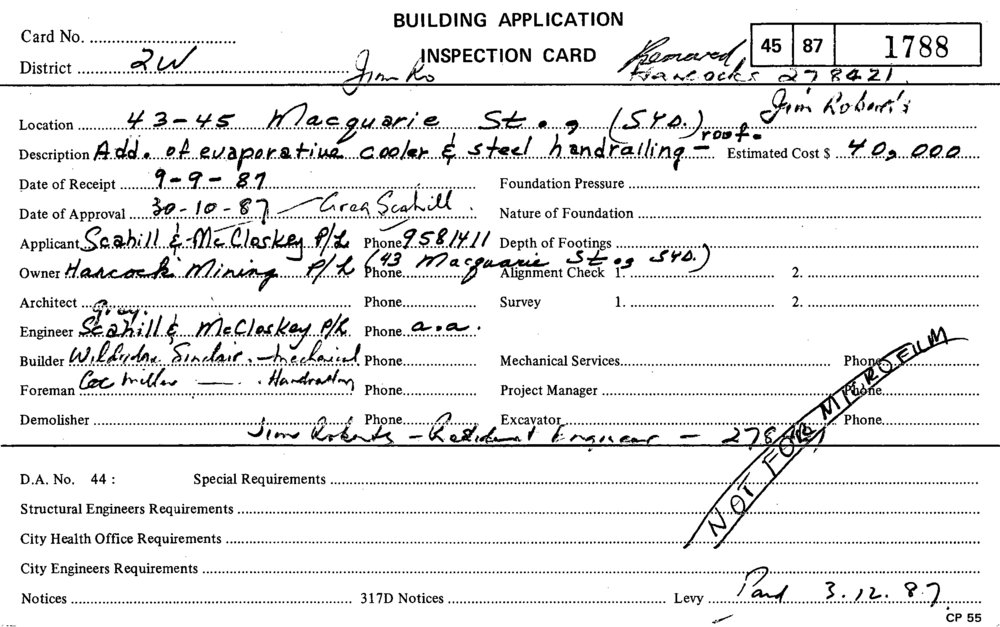 BUILDING APPLICATION
INSPECTION CARD
Card No.
District 2W
Jim Ro
45 87 1788
Hancocks 278421
Jim Roberts
Location 43-45 Macquarie St., (SYD.)
Description Add. of evaporative cooler & steel handrailing - roof. Estimated Cost $ 40,000
Date of Receipt 9-9-87 Foundation Pressure
Date of Approval 30-10-87 - Greg Scahill. Nature of Foundation
Applicant Scahill & McCloskey P/L Phone 9581411 Depth of Footings
Owner Hancock Mining P/L (43 Macquarie St., SYD.) Phone Alignment Check 1. 2.
Architect Phone Survey 1. 2.
Greg.
Engineer Scahill & McCloskey P/L Phone a.a.
Builder Sinclair. - mechanical Phone Mechanical Services Phone
Foreman Miller - Handrailing Phone Project Manager Phone
Demolisher Phone Excavator Phone
Jim Roberts - Resident Engineer -
NOT FOR MICROFILM
D.A. No. 44 : Special Requirements
Structural Engineers Requirements
City Health Office Requirements
City Engineers Requirements
Notices 317D Notices Levy Paid 3.12.87
CP 55